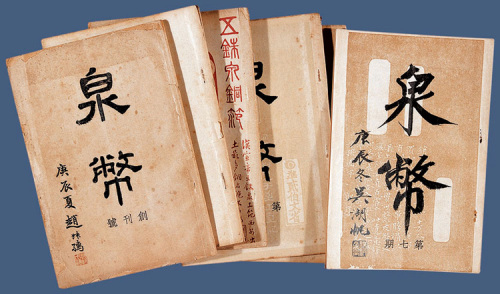 泉幣
創刊號
庚辰夏趙叔孺
五銖泉銅範
泉幣
第
泉幣
第七期
庚辰冬吳湖帆